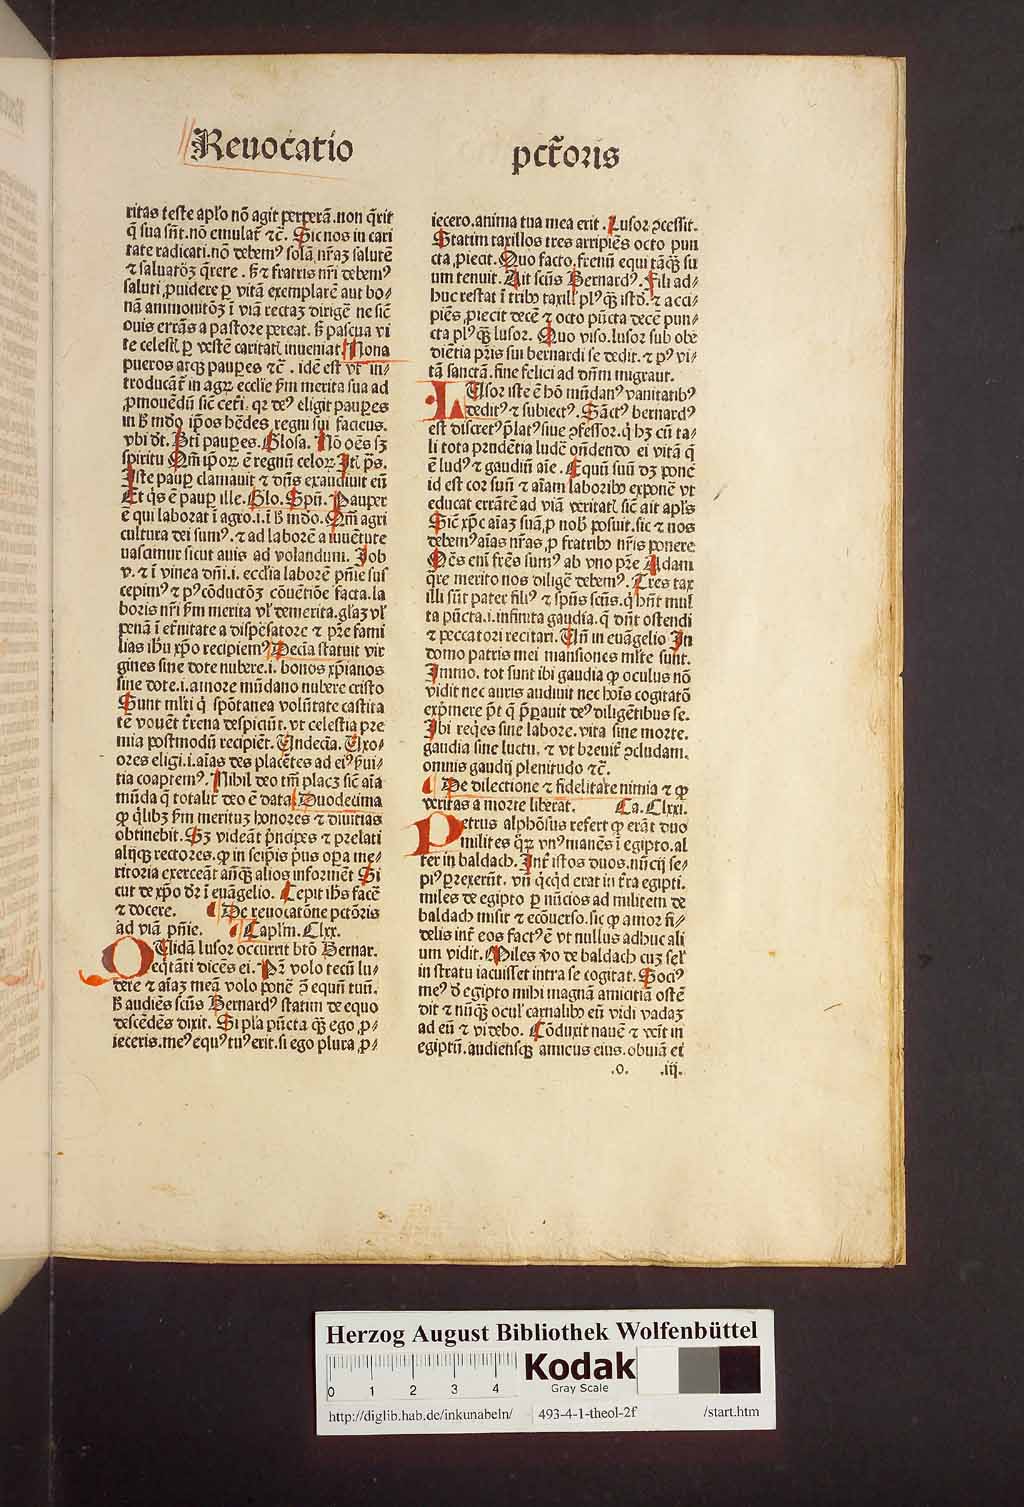 Reuocatio pct̄oris
ritas teste aplo nō agit perperā.non q̄rit
q̄ sua sūt.nō emulat᷑ ⁊c̄. Sic nos in cari
tate radicati.nō debemꝰ solā nr̄aꝫ salutē
⁊ saluatōꝫ q̄rere. sꝫ ⁊ fratris nr̄i debemꝰ
saluti ꝓuidere ꝑ vitā exemplarē aut bo⸗
nā ammonitōꝫ ī viā rectaꝫ dirigē ne sic̄
ouis errās a pastore pereat. sꝫ pascua vi
te celesti ꝑ vestē caritati inueniat Nona
pueros atqꝫ pauꝑes ⁊c̄. idē est vt in⸗
troducāt᷑ in agꝝ eccl̄ie ẜm merita sua ad
ꝓmouēdū sic̄ cet̄i. qꝛ deꝰ eligit pauꝑes
in h̄ mūdo ip̄os h̄edes regni sui faciēs.
vbi dr̄. Bt̄i pauꝑes. Glosa. Nō oēs sꝫ
spiritu Qm̄ ip̄oꝝ ē regnū celoꝝ It̄ p̄s.
Iste pauꝑ clamauit ⁊ dn̄s exaudiuit eū
Et q̄s ē pauꝑ ille. Glo. Spū. Pauper
ē qui laborat ī agro.i.ī h̄ mūdo. Qm̄ agri
cultura dei sumꝰ. ⁊ ad laborē a iuuētute
nascimur sicut auis ad volandum. Job
v. ⁊ ī vinea dn̄i.i. eccl̄ia laborē pn̄ie sus
cepimꝰ ⁊ pꝰ cōductōꝫ cōuētiōe facta. la
boris nr̄i ẜm merita vl̓ demerita. gl̄aꝫ vl̓
penā ī et̄nitate a dispēsatore ⁊ pr̄e fami
lias ih̄u xp̄o recipiemꝰ Decīa statuit vir
gines sine dote nubere.i. bonos xp̄ianos
sine dote.i.amore mūdano nubere cristo
Sunt ml̄ti q̄ spōtanea volūtate castita
tē vouēt t̄rena despiciūt. vt celestia pre
mia postmodū recipiēt. Undecīa. Uxo⸗
ores eligi.i.aīas des placētes ad eiꝰ ẜui⸗
tia coaptemꝰ. Nihil deo tm̄ placꝫ sic̄ aīa
mūda q̄ totalit᷑ deo ē data Duodecima
ꝙ q̄libꝫ ẜm merituꝫ honores ⁊ diuitias
obtinebit. Sꝫ videāt p̄ncipes ⁊ prelati
alijqꝫ rectores. ꝙ in seip̄is p̄us oꝑa me⸗
ritoria exerceāt an̄qꝫ alios informēt Si
cut de xp̄o dr̄ ī euāgelio. Cepit ih̄s facē
⁊ docere. De reuocatōne pctōris
ad viā pn̄ie. Caplm̄. Clxx.
QUidā lusor occurrit bt̄o Bernar.
eq̄tāti dicēs ei. Pr̄ volo tecū lu⸗
dere ⁊ aīaꝫ meā volo ponē ꝓ equū tuū.
h̄ audiēs scūs Bernardꝰ statim de equo
descēdēs dixit. Si pl̄a pūcta qꝫ ego ꝓ⸗
ieceris.meꝰ equꝰ tuꝰ erit.si ego plura ꝓ⸗
iecero.anima tua mea erit. Lusor ꝯcessit.
Statim taxillos tres arripiēs octo pun
cta ꝓiecit. Quo facto.frenū equi tāqꝫ su
um tenuit. Ait scūs Bernardꝰ. Fili ad⸗
huc restat ī tribꝰ taxill̓ plꝰqꝫ istd̄. ⁊ acci⸗
piēs ꝓiecit decē ⁊ octo pūcta decē pun⸗
cta plꝰ qꝫ lusor. Quo viso.lusor sub obe
diētia pr̄is sui bernardi se dedit. ⁊ pꝰ vi⸗
tā sanctā. fine felici ad dn̄m migraut.
LUsor iste ē hō mūdanꝰ vanitatibꝰ
deditꝰ ⁊ subiectꝰ. Sāctꝰ bernardꝰ
est discretꝰ p̄latꝰ siue ꝯfessor. q̄ hꝫ cū ta⸗
li tota prudētia ludē on̄dendo ei vitā q̄
ē ludꝰ ⁊ gaudiū aīe. Equū suū dꝫ ponē
id est cor suū ⁊ aīam laboribꝰ exponē vt
educat errātē ad viā veritati. sic̄ ait apl̄s
Sic̄ xp̄c aīaꝫ suā ꝓ nob̓ posuit. sic ⁊ nos
debemꝰ aīas nr̄as ꝓ fratribꝰ nr̄is ponere
Oēs eni fr̄es sumꝰ ab vno pr̄e Adam
q̄re merito nos diligē debemꝰ. Tres tax
illi sūt pater filiꝰ ⁊ spūs scūs. q̄ hn̄t mul
ta pūcta.i.infinita gaudia. q̄ dn̄t ostendi
⁊ peccatori recitari. Un̄ in euāgelio In
domo patris mei mansiones ml̄te sunt.
Immo. tot sunt ibi gaudia ꝙ oculus nō
vidit nec auris audiuit nec hoīs cogitatō
exp̄mere p̄t q̄ p̄ꝑauit deꝰ diligētibus se.
Ibi req̄es sine labore. vita sine morte.
gaudia sine luctu. ⁊ vt breuit᷑ ꝯcludam.
omnis gaudij plenitudo ⁊c̄.
De dilectione ⁊ fidelitate nimia ⁊ ꝙ
veritas a morte liberat. Ca. Clxxi.
PEtrus alphōsus refert ꝙ erāt duo
milites q̄ꝝ vnꝰ manēs ī egipto. al
ter in baldach. Int̄ istos duos. nūcij se⸗
piꝰ ꝑrexerūt. vn̄ q̄cqd̄ erat in t̄ra egipti.
miles de egipto ꝑ nūcios ad militem de
baldach misit ⁊ ecōuerso. sic ꝙ amor fi⸗
delis int̄ eos factꝰ ē vt nullus adhuc ali
um vidit. Miles v̄o de baldach cuꝫ sel̓
in stratu iacuisset intra se cogitat. Sociꝰ
meꝰ d̄ egipto mihi magnā amicitiā ostē
dit ⁊ nūqꝫ ocul̓ carnalibꝰ eū vidi vadaꝫ
ad eū ⁊ videbo. Cōduxit nauē ⁊ vēit in
egiptū. audiensqꝫ amicus eius. obuiā ei
.o. .iij.
Herzog August Bibliothek Wolfenbüttel
0 1 2 3 4
Kodak
Gray Scale
http://diglib.hab.de/inkunabeln/ 493-4-1-theol-2f /start.htm